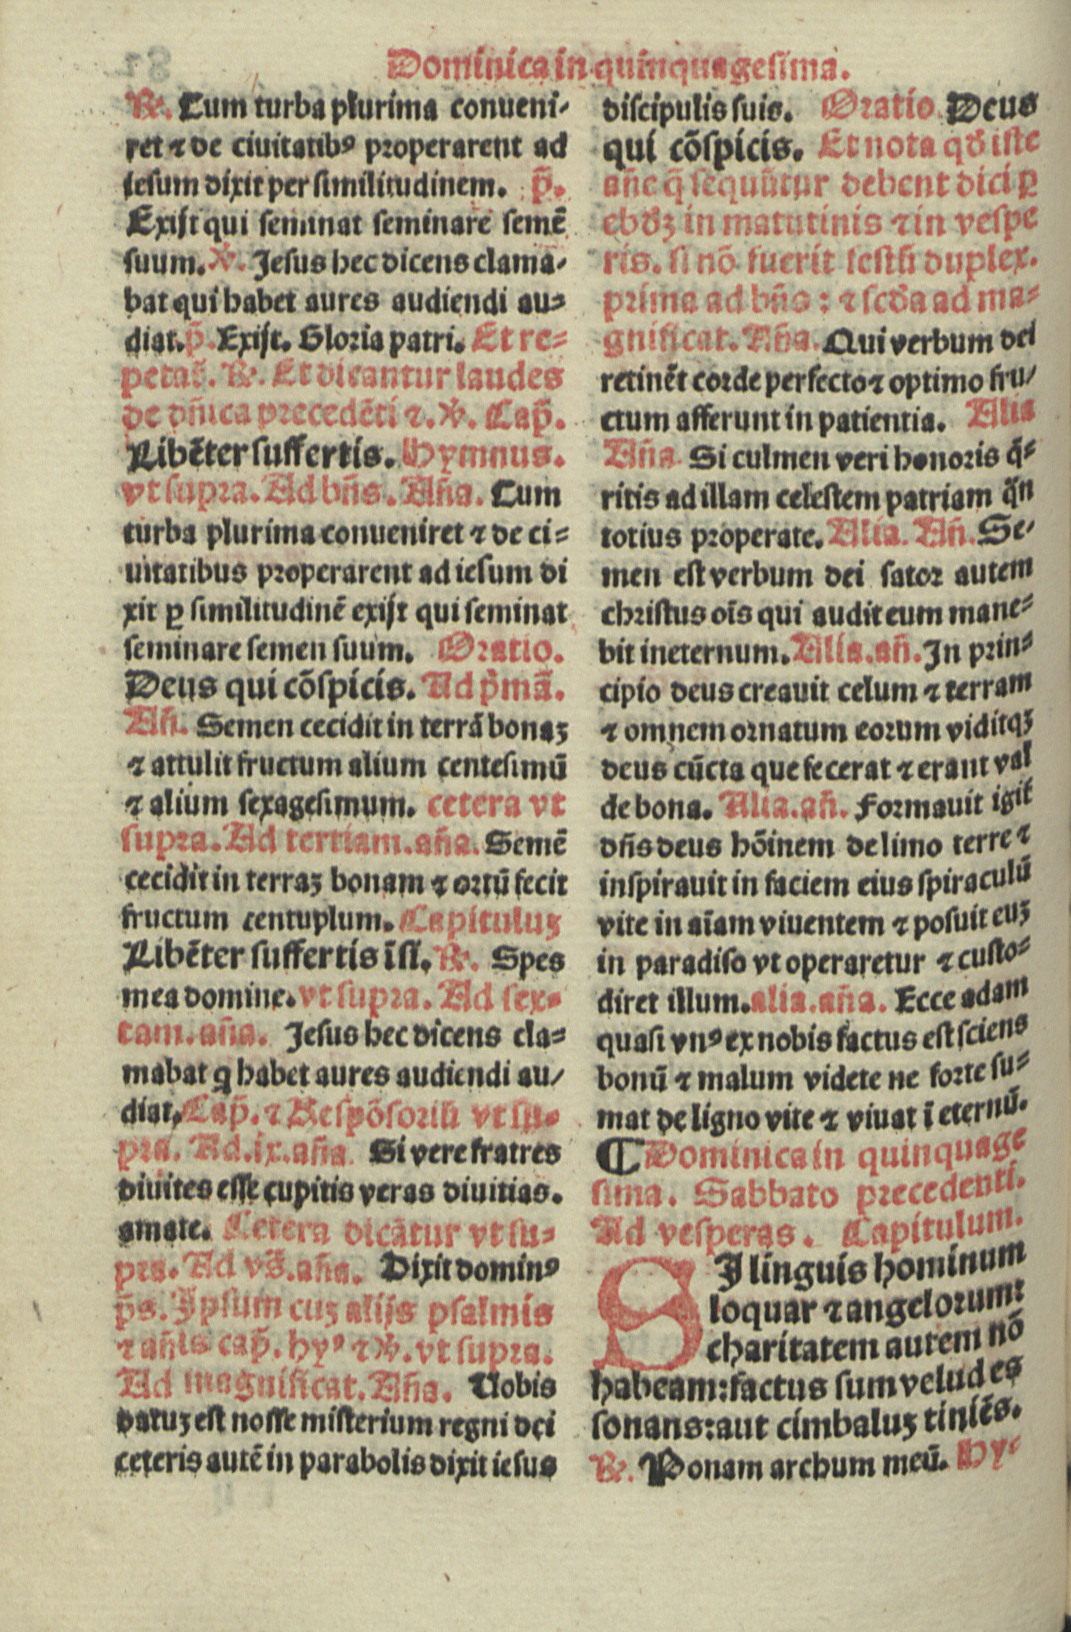 Dominica in quinquagesima.
℟. Cum turba plurima conueni-
ret ⁊ de ciuitatibꝰ properarent ad
iesum dixit per similitudinem. p̃.
Exijt qui seminat seminare semē
suum. ℣. Jesus hec dicens clama-
bat qui habet aures audiendi au-
diat. p̃. Exijt. Gloria patri. Et re-
petat̃. ℟. Et dicantur laudes
de dñica precedēti ⁊. ℣. Cap̃.
Libēter suffertis. Hymnus.
vt supra. Ad bñs. Aña. Cum
turba plurima conueniret ⁊ de ci-
uitatibus properarent ad iesum di
xit ꝑ similitudinē exijt qui seminat
seminare semen suum. Oratio.
Deus qui cōspicis. Ad p̃mā.
Añ. Semen cecidit in terrā bonaꝫ
⁊ attulit fructum alium centesimū
⁊ alium sexagesimum. cetera vt
supra. Ad tertiam. aña. Semē
cecidit in terraꝫ bonam ⁊ ortū fecit
fructum centuplum. Capituluꝫ
Libēter suffertis īsĩ. ℟. Spes
mea domine. vt supra. Ad sex-
tam. aña. Jesus hec dicens cla-
mabat ꝗ habet aures audiendi au-
diat. Cap̃. ⁊ Respōsoriũ vt su-
pra. Ad .ix. aña. Si vere fratres
diuites esse cupitis veras diuitias.
amate. Cetera dicātur vt su-
pra. Ad vs̃. aña. Dixit dominꝰ
p̃s. Ipsum cuꝫ alijs psalmis
⁊ añis cap̃. hyꝰ ⁊ ℣. vt supra.
Ad magnificat. Aña. Uobis
datuꝫ est nosse misterium regni dei
ceteris autē in parabolis dixit iesus
discipulis suis. Oratio. Deus
qui cōspicis. Et nota qđ iste
añe q̃ sequūtur debent dici ꝑ
ebđꝫ in matutinis ⁊ in vespe
ris. si nō fuerit festũ duplex.
prima ad bñs: ⁊ scđa ad ma-
gnificat. Aña. Qui verbum dei
retinēt corde perfecto ⁊ optimo fru-
ctum afferunt in patientia. Alia
Aña. Si culmen veri honoris q̃-
ritis ad illam celestem patriam q̃n
totius properate. Alia. Añ. Se-
men est verbum dei sator autem
christus oīs qui audit eum mane-
bit ineternum. Alia. añ. In prin-
cipio deus creauit celum ⁊ terram
⁊ omnem ornatum eorum viditqꝫ
deus cūcta que fecerat ⁊ erant val
de bona. Alia. añ. Formauit igit̃
dñs deus hōinem de limo terre ⁊
inspirauit in faciem eius spiraculū
vite in aīam viuentem ⁊ posuit euꝫ
in paradiso vt operaretur ⁊ custo-
diret illum. alia. aña. Ecce adam
quasi vnꝰ ex nobis factus est sciens
bonū ⁊ malum videte ne forte su-
mat de ligno vite ⁊ viuat ī eternū.
¶ Dominica in quinquage
sima. Sabbato precedenti.
Ad vesperas. Capitulum.
SI linguis hominum
loquar ⁊ angelorum:
charitatem autem nō
habeam: factus sum velud es
sonans: aut cimbaluꝫ tiniēs.
℟. Ponam archum meū. Hy-